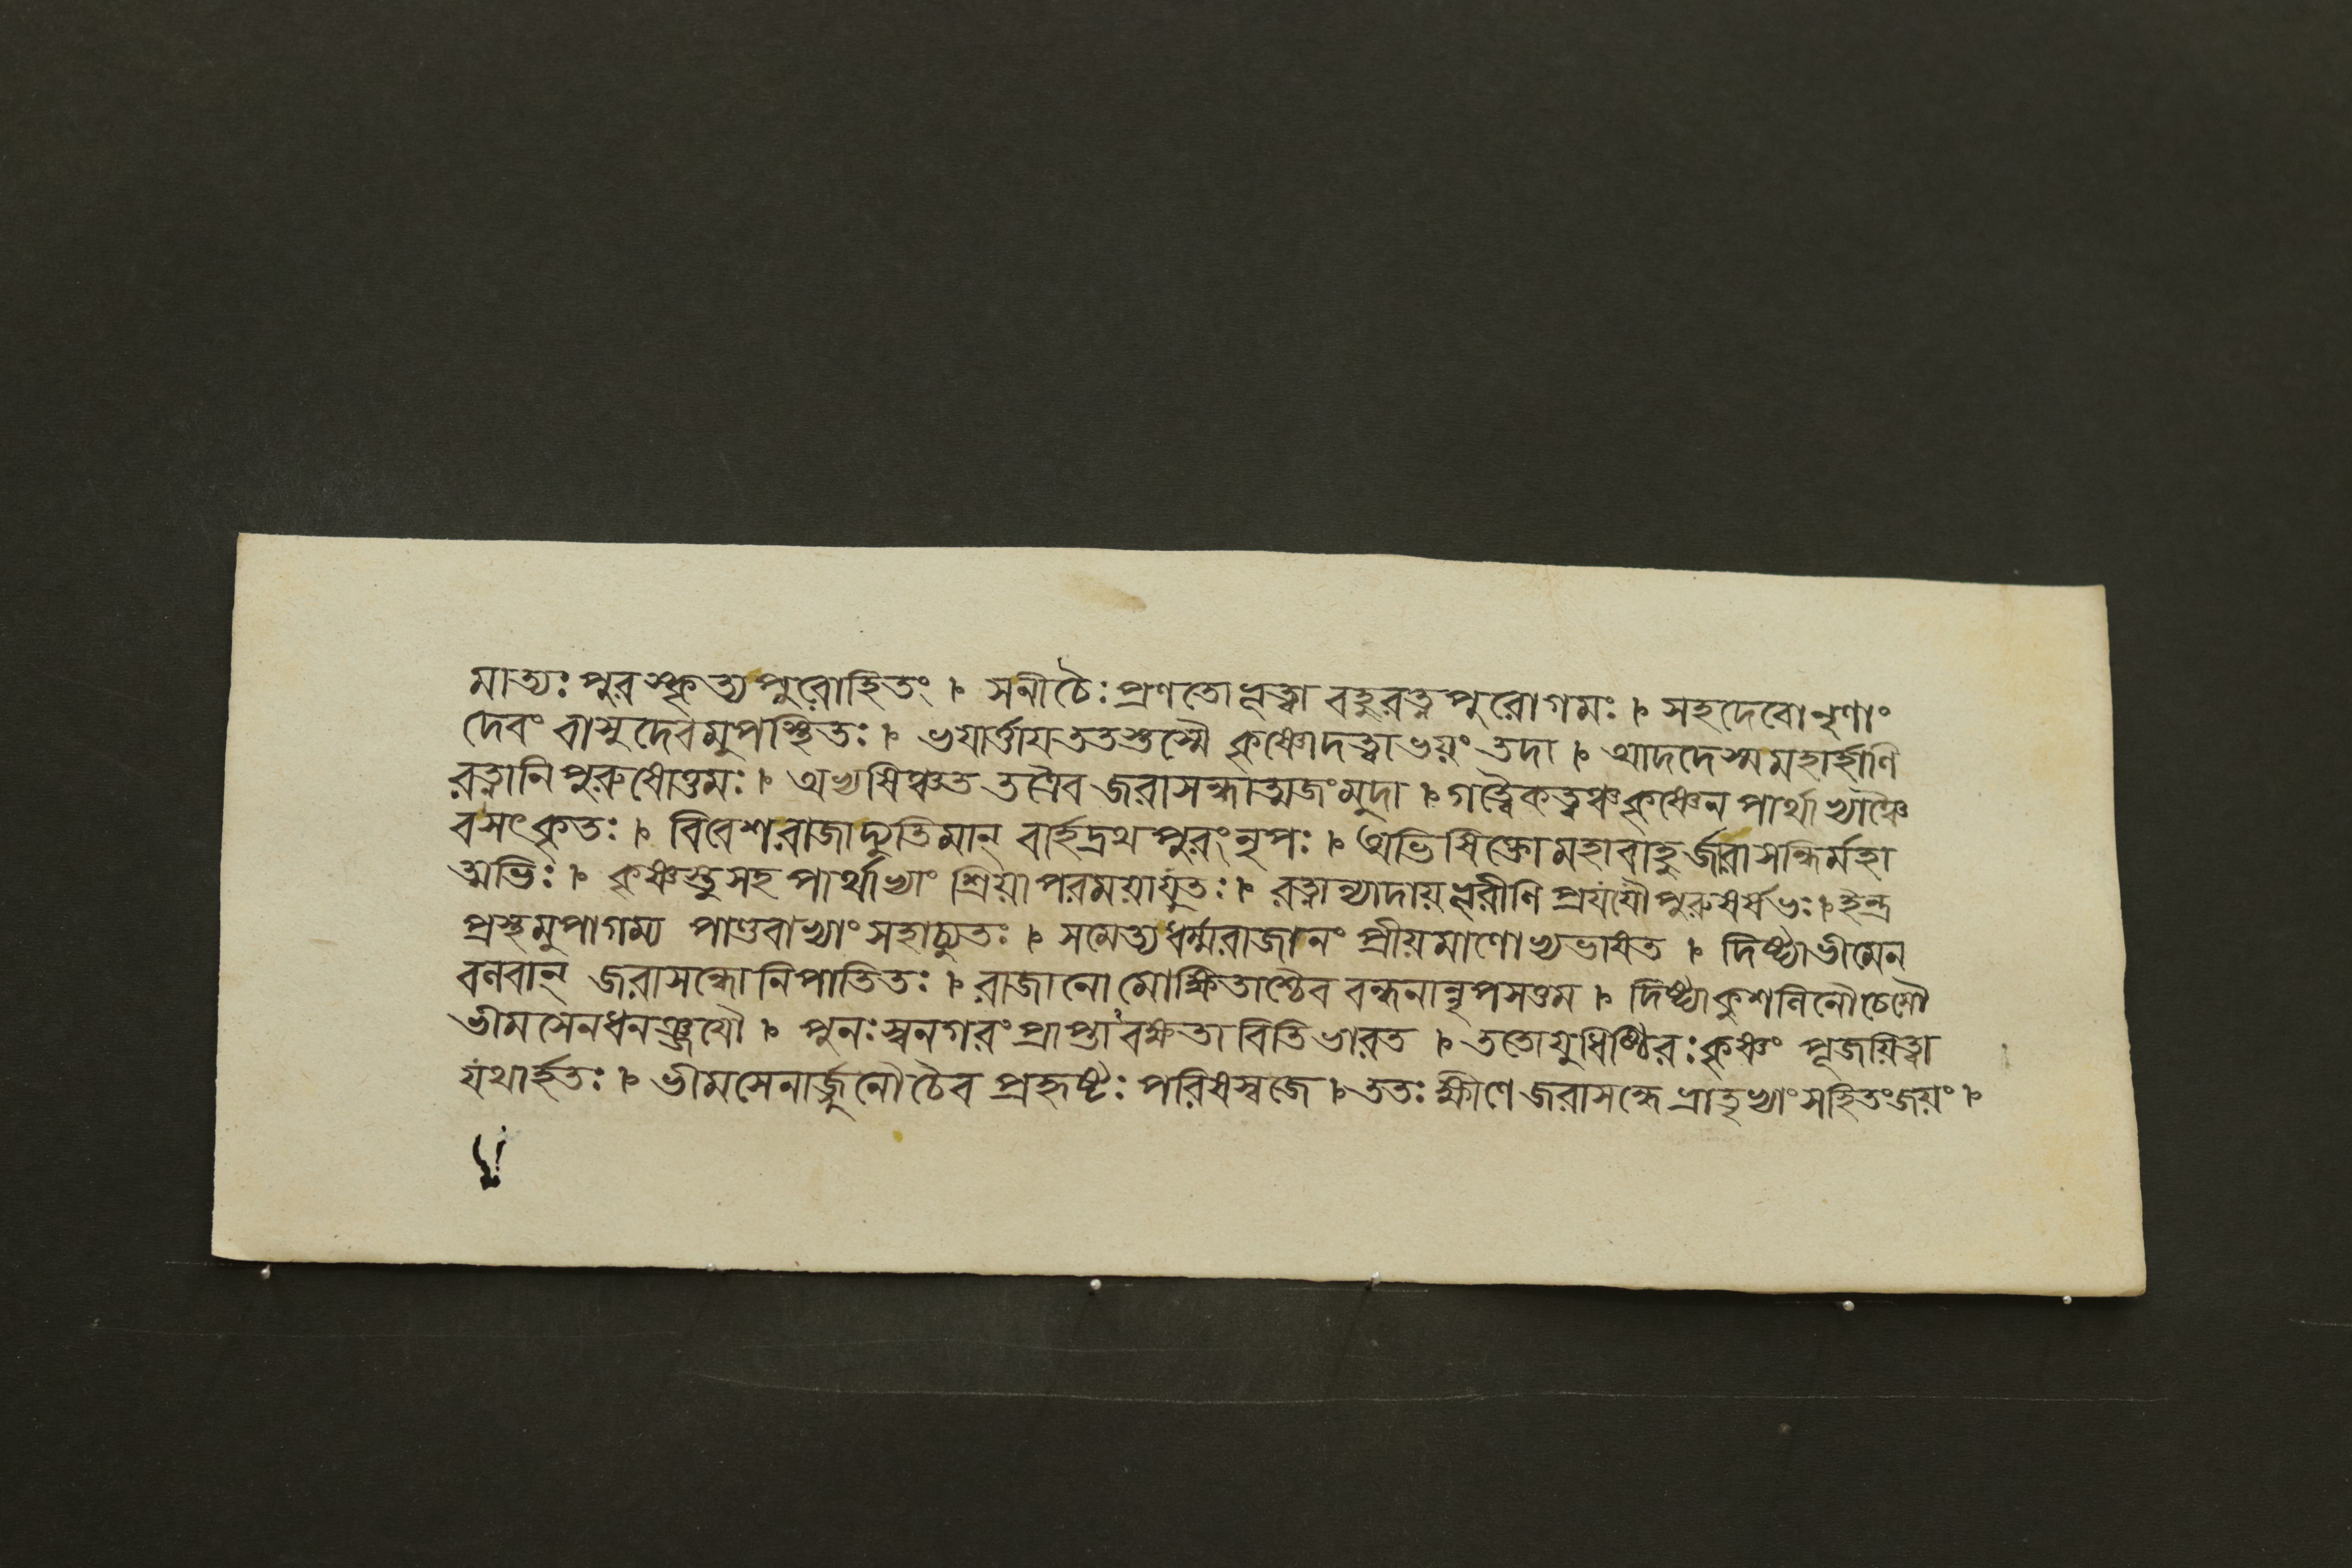 মাত্যঃ পুরস্কৃত্য পুরোহিতং । সনীচৈঃ প্রণতোভূত্বা বহুরত্নপুরোগমঃ । সহদেবোনৃণাং
দেবং বাসুদেবমুপস্থিতঃ । ভয়ার্ত্তায়ততস্তস্মৈ কৃষ্ণোদত্ত্বাভয়ং তদা । আদদেস্মমহার্হাণি
রত্নানিপুরুষোত্তমঃ । অভ্যষিঞ্চত তত্রৈব জরাসন্ধাত্মজংমুদা । গত্বৈকত্বঞ্চকৃষ্ণেন পার্থাভ্যাঞ্চৈ
বসৎকৃতঃ । বিবেশরাজাদ্যুতিমান্ বার্হদ্রথপুরংনৃপঃ । অভিষিক্তোমহাবাহুর্জরাসন্ধির্মহা
ত্মভিঃ । কৃষ্ণস্তুসহ পার্থাভ্যাং শ্রিয়াপরময়াযুতঃ । রত্নান্যাদায়ভূরীণি প্রযযৌপুরুষর্ষভঃ । ইন্দ্র
প্রস্থমুপাগম্য পাণ্ডবাভ্যাংসহাচ্যুতঃ । সমেত্যধর্ম্মরাজানং প্রীয়মাণোভ্যভাষত । দিষ্ট্যাভীমেন
বলবান্ জরাসন্ধোনিপাতিতঃ । রাজানোমোক্ষিতাশ্চৈব বন্ধনান্নৃপসত্তম । দিষ্ট্যাকুশলিনৌচেমৌ
ভীমসেনধনঞ্জয়ৌ । পুনঃস্বনগরংপ্রাপ্তাবক্ষতাবিতিভারত । ততোযুধিষ্ঠিরঃকৃষ্ণং পূজয়িত্বা
যথার্হতঃ । ভীমসেনার্জ্জুনৌচৈব প্রহৃষ্টঃ পরিষস্বজে । ততঃক্ষীণেজরাসন্ধেভ্রাতৃভ্যাংসহিতংজয়ং ।